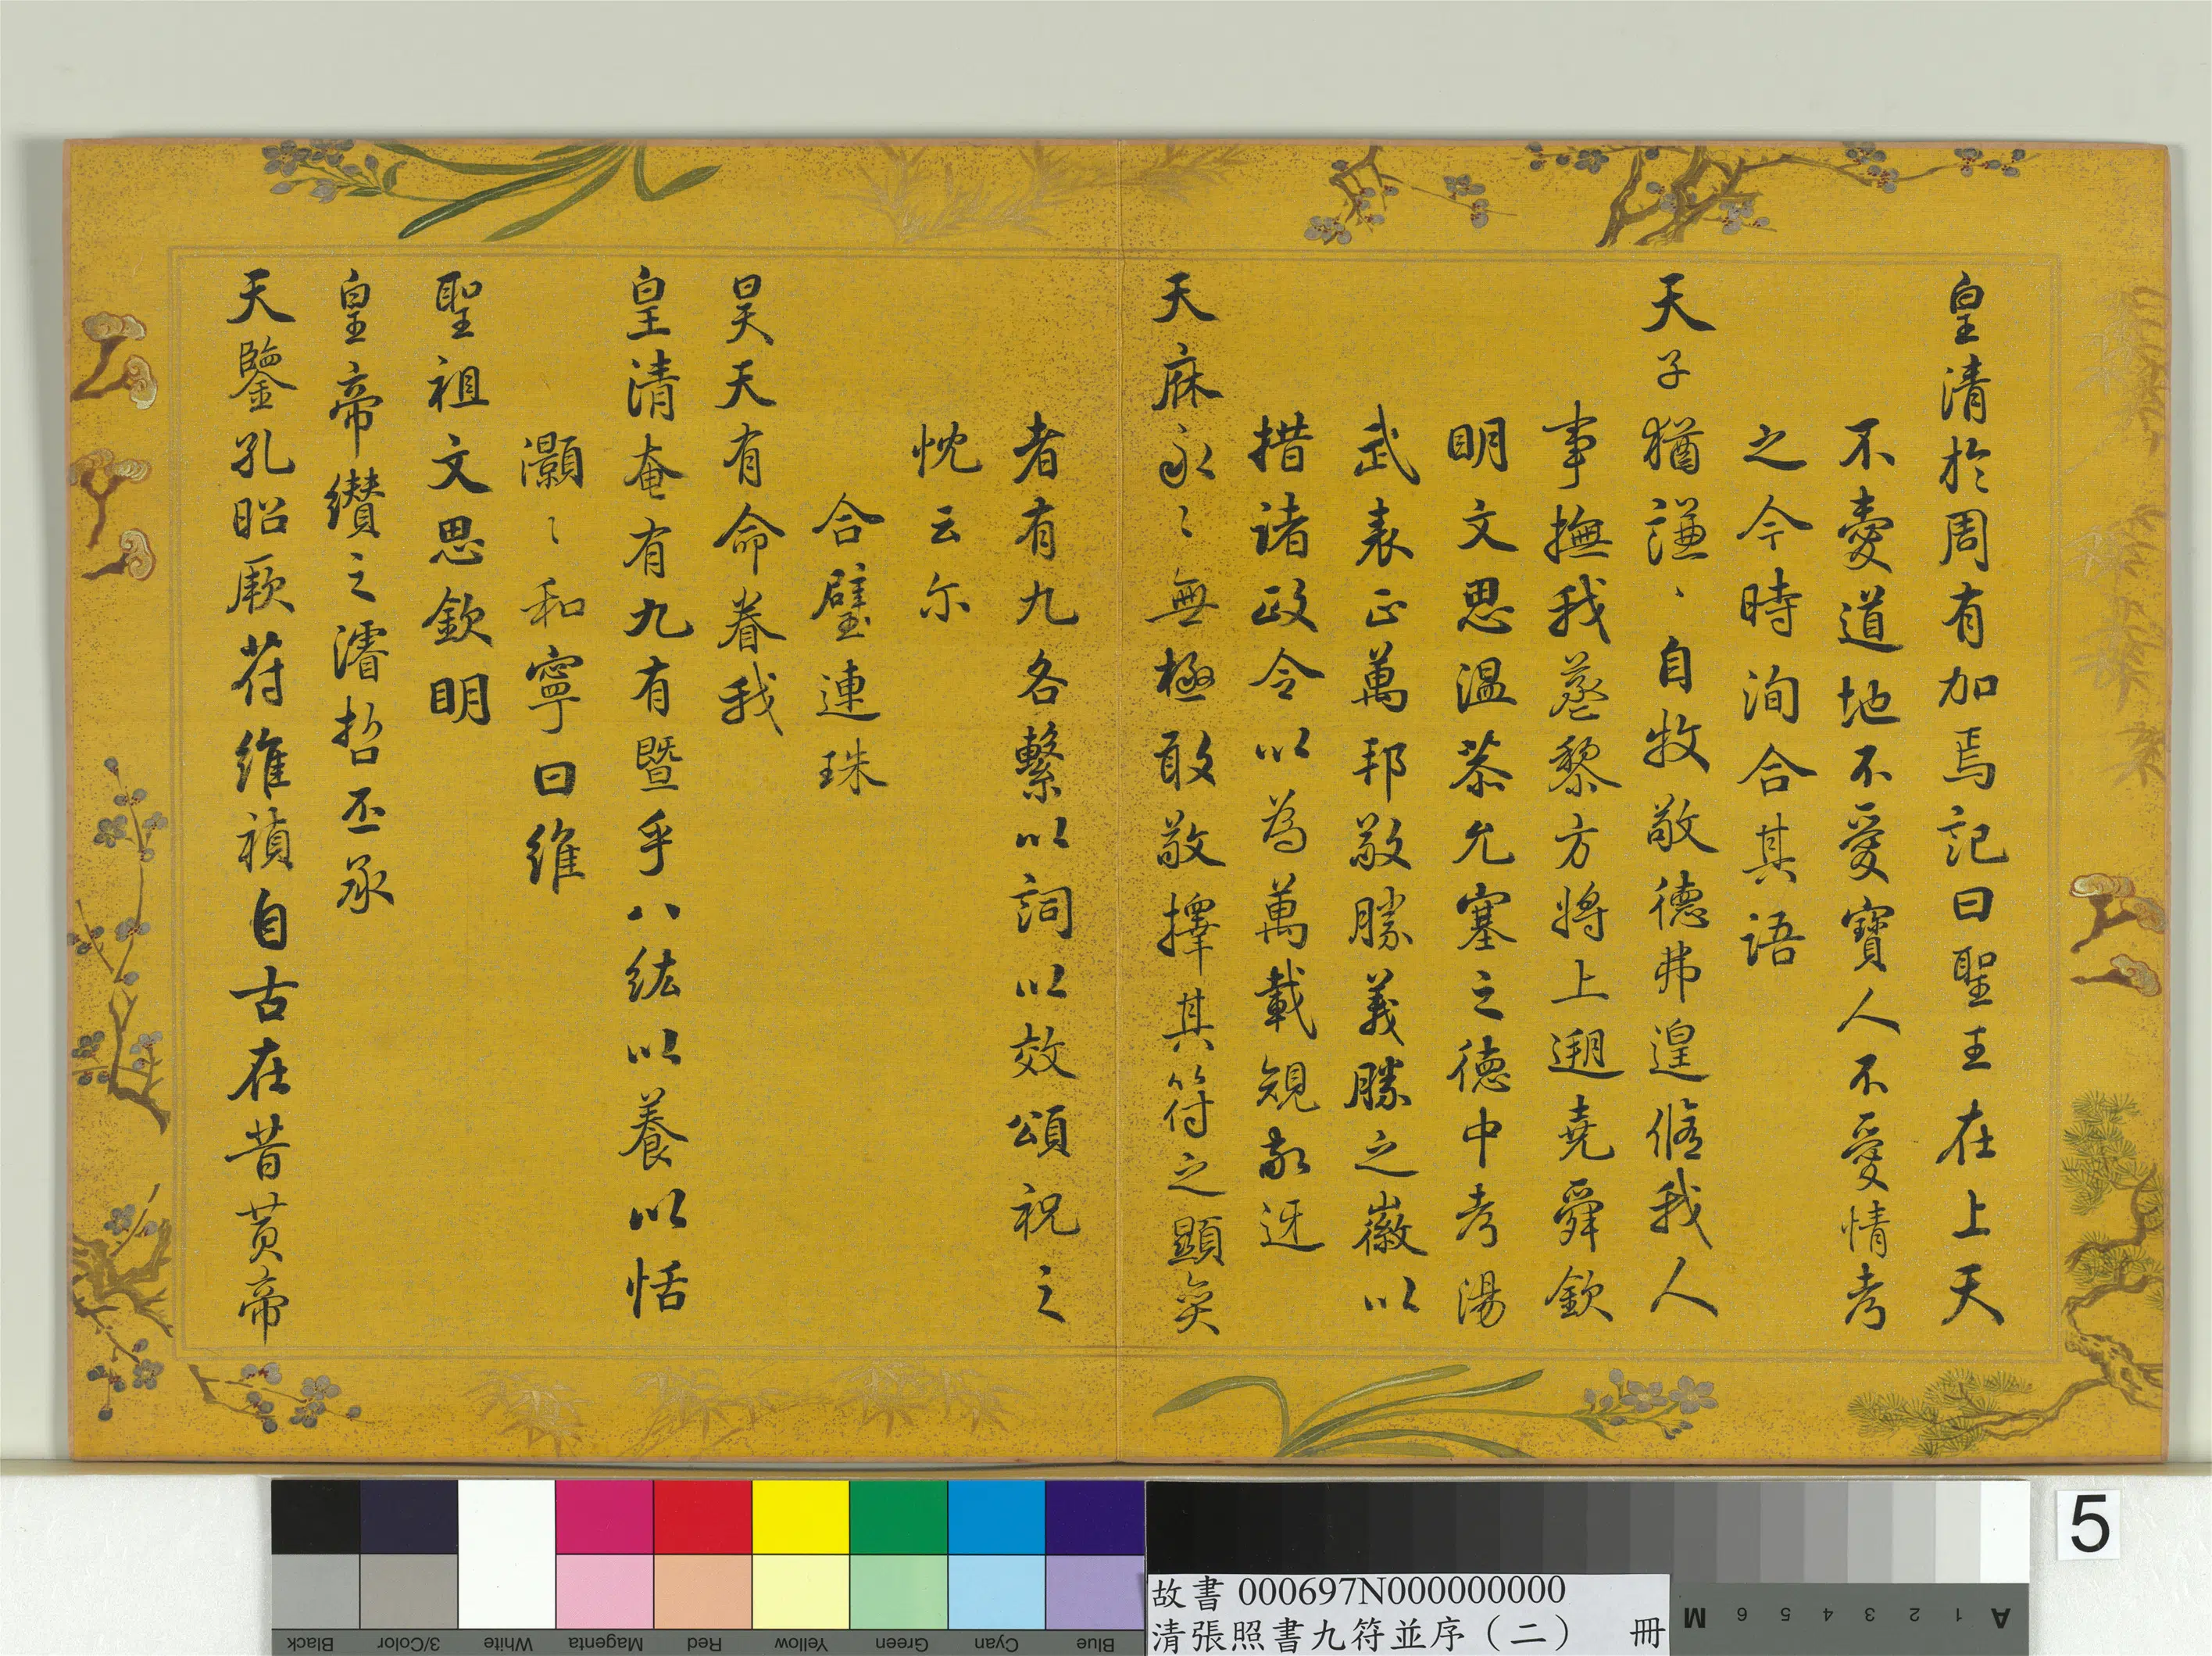 皇清於周有加焉記曰聖王在上天
不愛道地不愛寶人不愛情考
之今時洵合其語
天子猶謙〻自牧敬德弗遑脩我人
事撫我蒸黎方將上遡堯舜欽
明文思溫恭允塞之德中考湯
武表正萬邦敬勝義勝之徽以
措諸政令以為萬載規敬迓
天庥永〻無極敢敬擇其符之顯奕
者有九各繫以詞以效頌祝之
忱云尔
合璧連珠
昊天有命眷我
皇清奄有九有暨乎八紘以養以恬
灝〻和寧曰維
聖祖文思欽明
皇帝纘之濬哲丕承
天鑒孔昭厥符維禎自古在昔黃帝
5
故書 000697N000000000
清張照書九符並序（二） 冊
Black
3/Color
White
Magenta
Red
Yellow
Green
Cyan
Blue
A 1 2 3 4 5 6 M